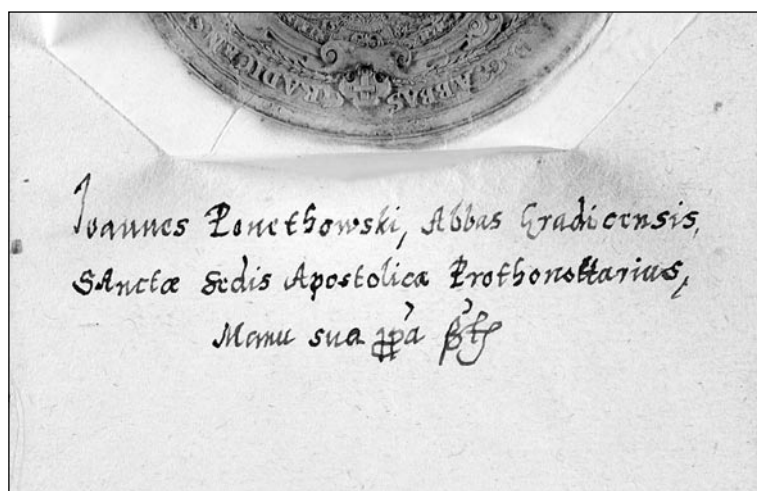 D. G. ABBAS GRADICENSIS
Ioannes Ponethowski, Abbas Gradicensis,
SAnctæ Sedis Apostolicæ Prothonottarius,
Manu sua